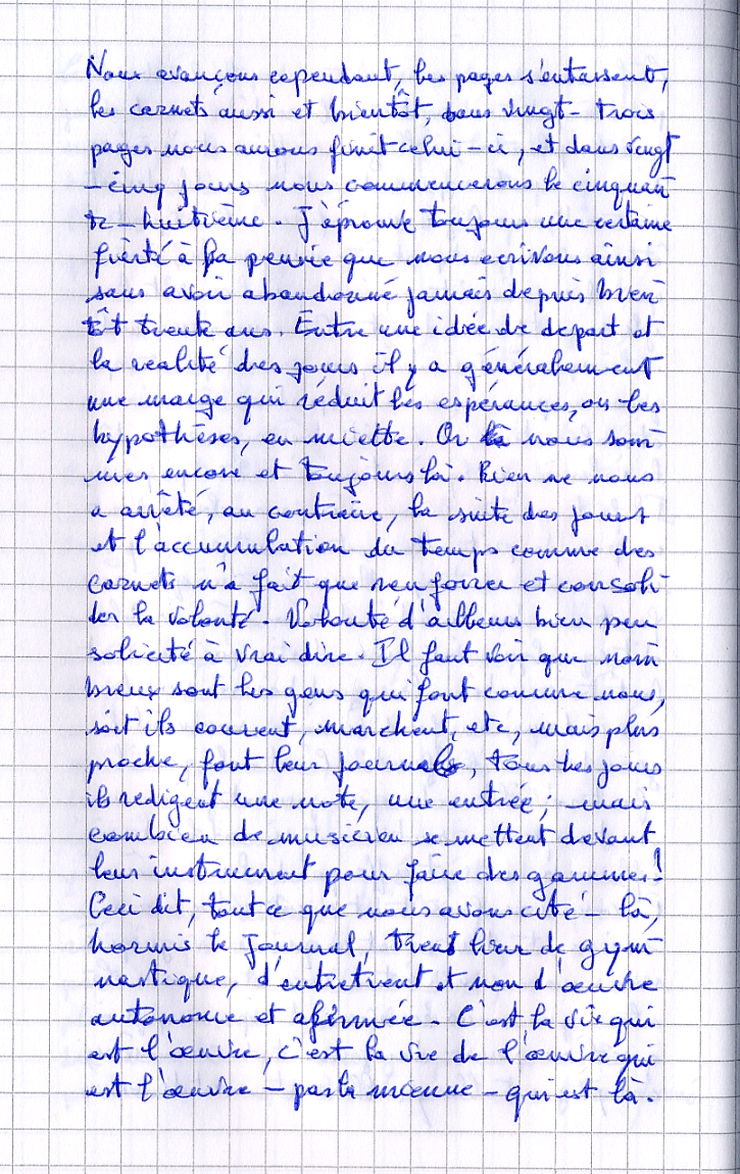 Nous avançons cependant, les pages s'entassent,
les carnets aussi et bientôt, dans vingt-trois
pages nous aurons finit celui-ci, et dans vingt
-cinq jours nous commencerons le cinquan
te-huitième. J'éprouve toujours une certaine
fierté à la pensée que nous ecrivons ainsi
sans avoir abandonné jamais depuis bien
tôt trente ans. Entre une idée de depart et
la realité des jours il y a généralement
une marge qui réduit les espérances, ou les
hypothèses, en miette. Or là nous som
mes encore et toujours là. Rien ne nous
a arrêté, au contraire, la suite des jours
et l'accumulation du temps comme des
carnets n'a fait que renforcer et consoli
der la volonté. Volonté d'ailleurs bien peu
solicité à vrai dire. Il faut voir que nom
breux sont les gens qui font comme nous,
soit ils courent, marchent, etc, mais plus
proche, font leur journal, tous les jours
ils redigent une note, une entrée; mais
combien de musicien se mettent devant
leur instrument pour faire des gammes!
Ceci dit, tout ce que nous avons cité-là,
hormis le Journal, tient lieu de gym
nastique, d'entretient et non d'œuvre
autonome et afirmée. C'est la vie qui
est l'œuvre, c'est la vie de l'œuvre qui
est l'œuvre - pas la mienne - qui est là.